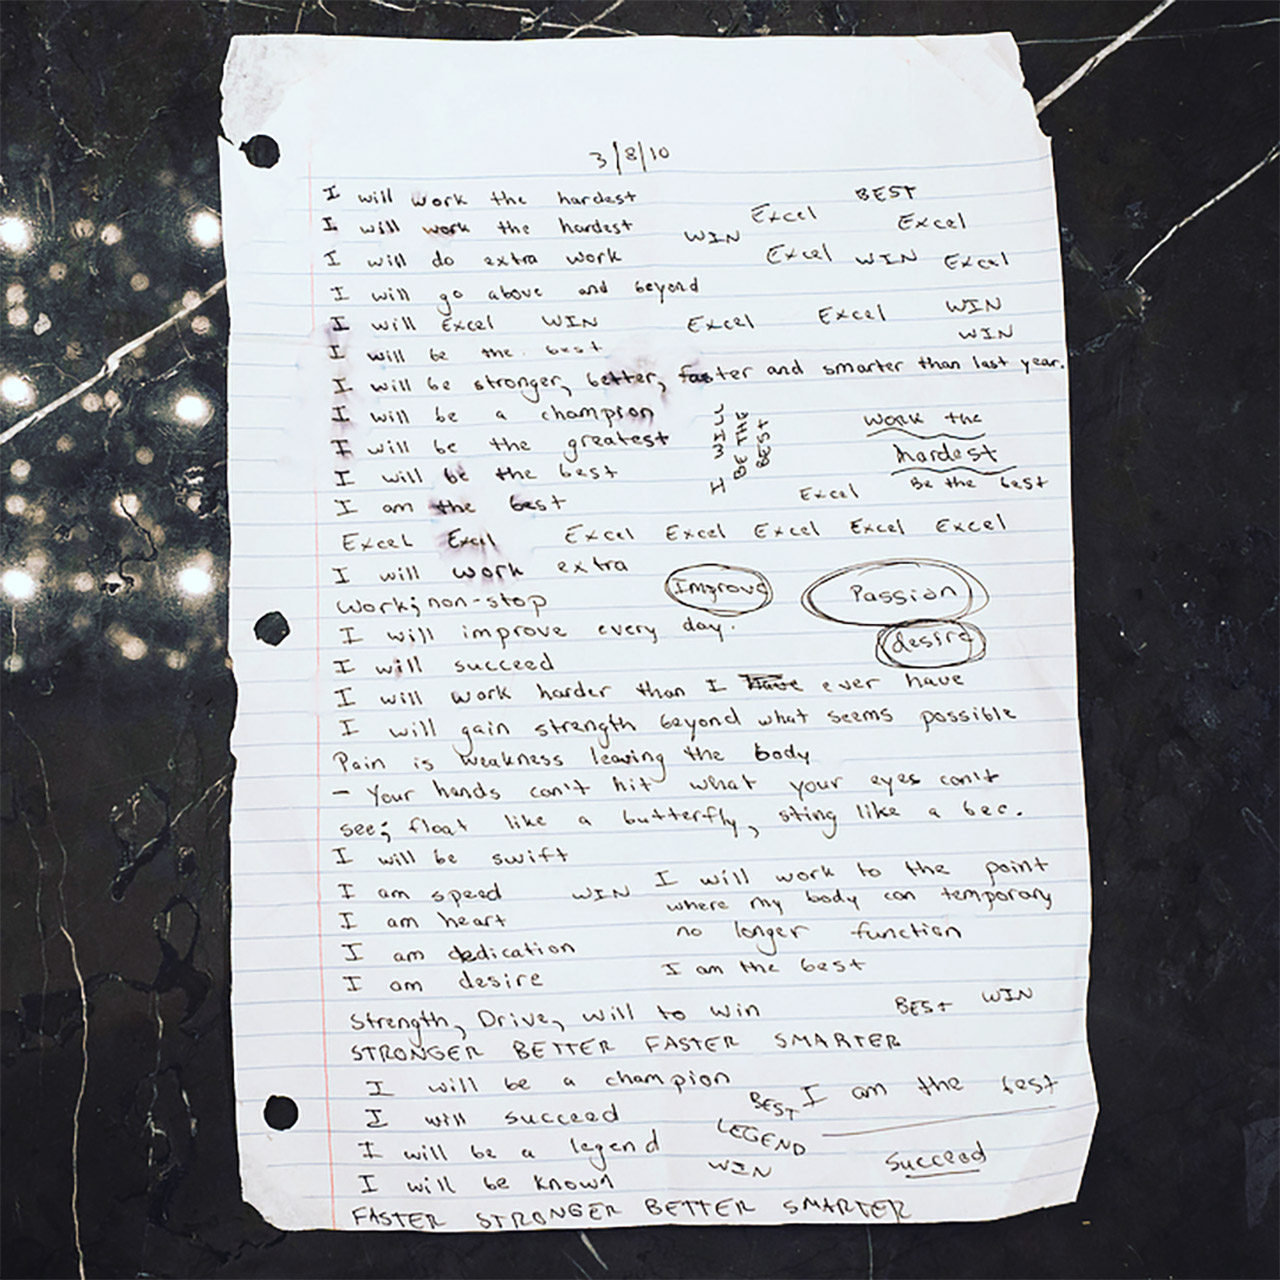 3/8/10
I will work the hardest BEST
I will work the hardest WIN Excel Excel
I will do extra work Excel WIN Excel
I will go above and beyond
I will Excel WIN Excel Excel WIN
I will be the best WIN
I will be stronger, better, faster and smarter than last year.
I will be a champion
I will be the greatest
I will be the best
I WILL
BE THE
BEST
work the
hardest
Be the best
I am the best Excel
Excel Excel Excel Excel Excel Excel Excel
I will work extra
Work; non-stop Improve Passion
I will improve every day. desire
I will succeed
I will work harder than I have ever have
I will gain strength beyond what seems possible
Pain is weakness leaving the body
- Your hands can't hit what your eyes can't
see; float like a butterfly, sting like a bee.
I will be swift
I am speed WIN
I am heart
I am dedication
I am desire
I will work to the point
where my body can temporary
no longer function
I am the best
Strength, Drive, Will to win BEST WIN
STRONGER BETTER FASTER SMARTER
I will be a champion
I will succeed BEST I am the best
I will be a legend LEGEND
I will be known WIN Succeed
FASTER STRONGER BETTER SMARTER